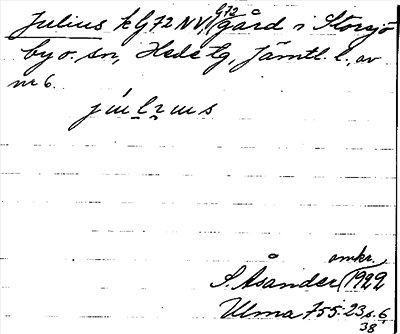 Julius k G72 NV, (G72 gård i Storsjö
by o. sn, Hede tg, Jämtl. l., av
nr 6.
S. Åsander (omkr. 1922
Ulma 755:23 s. 6
38